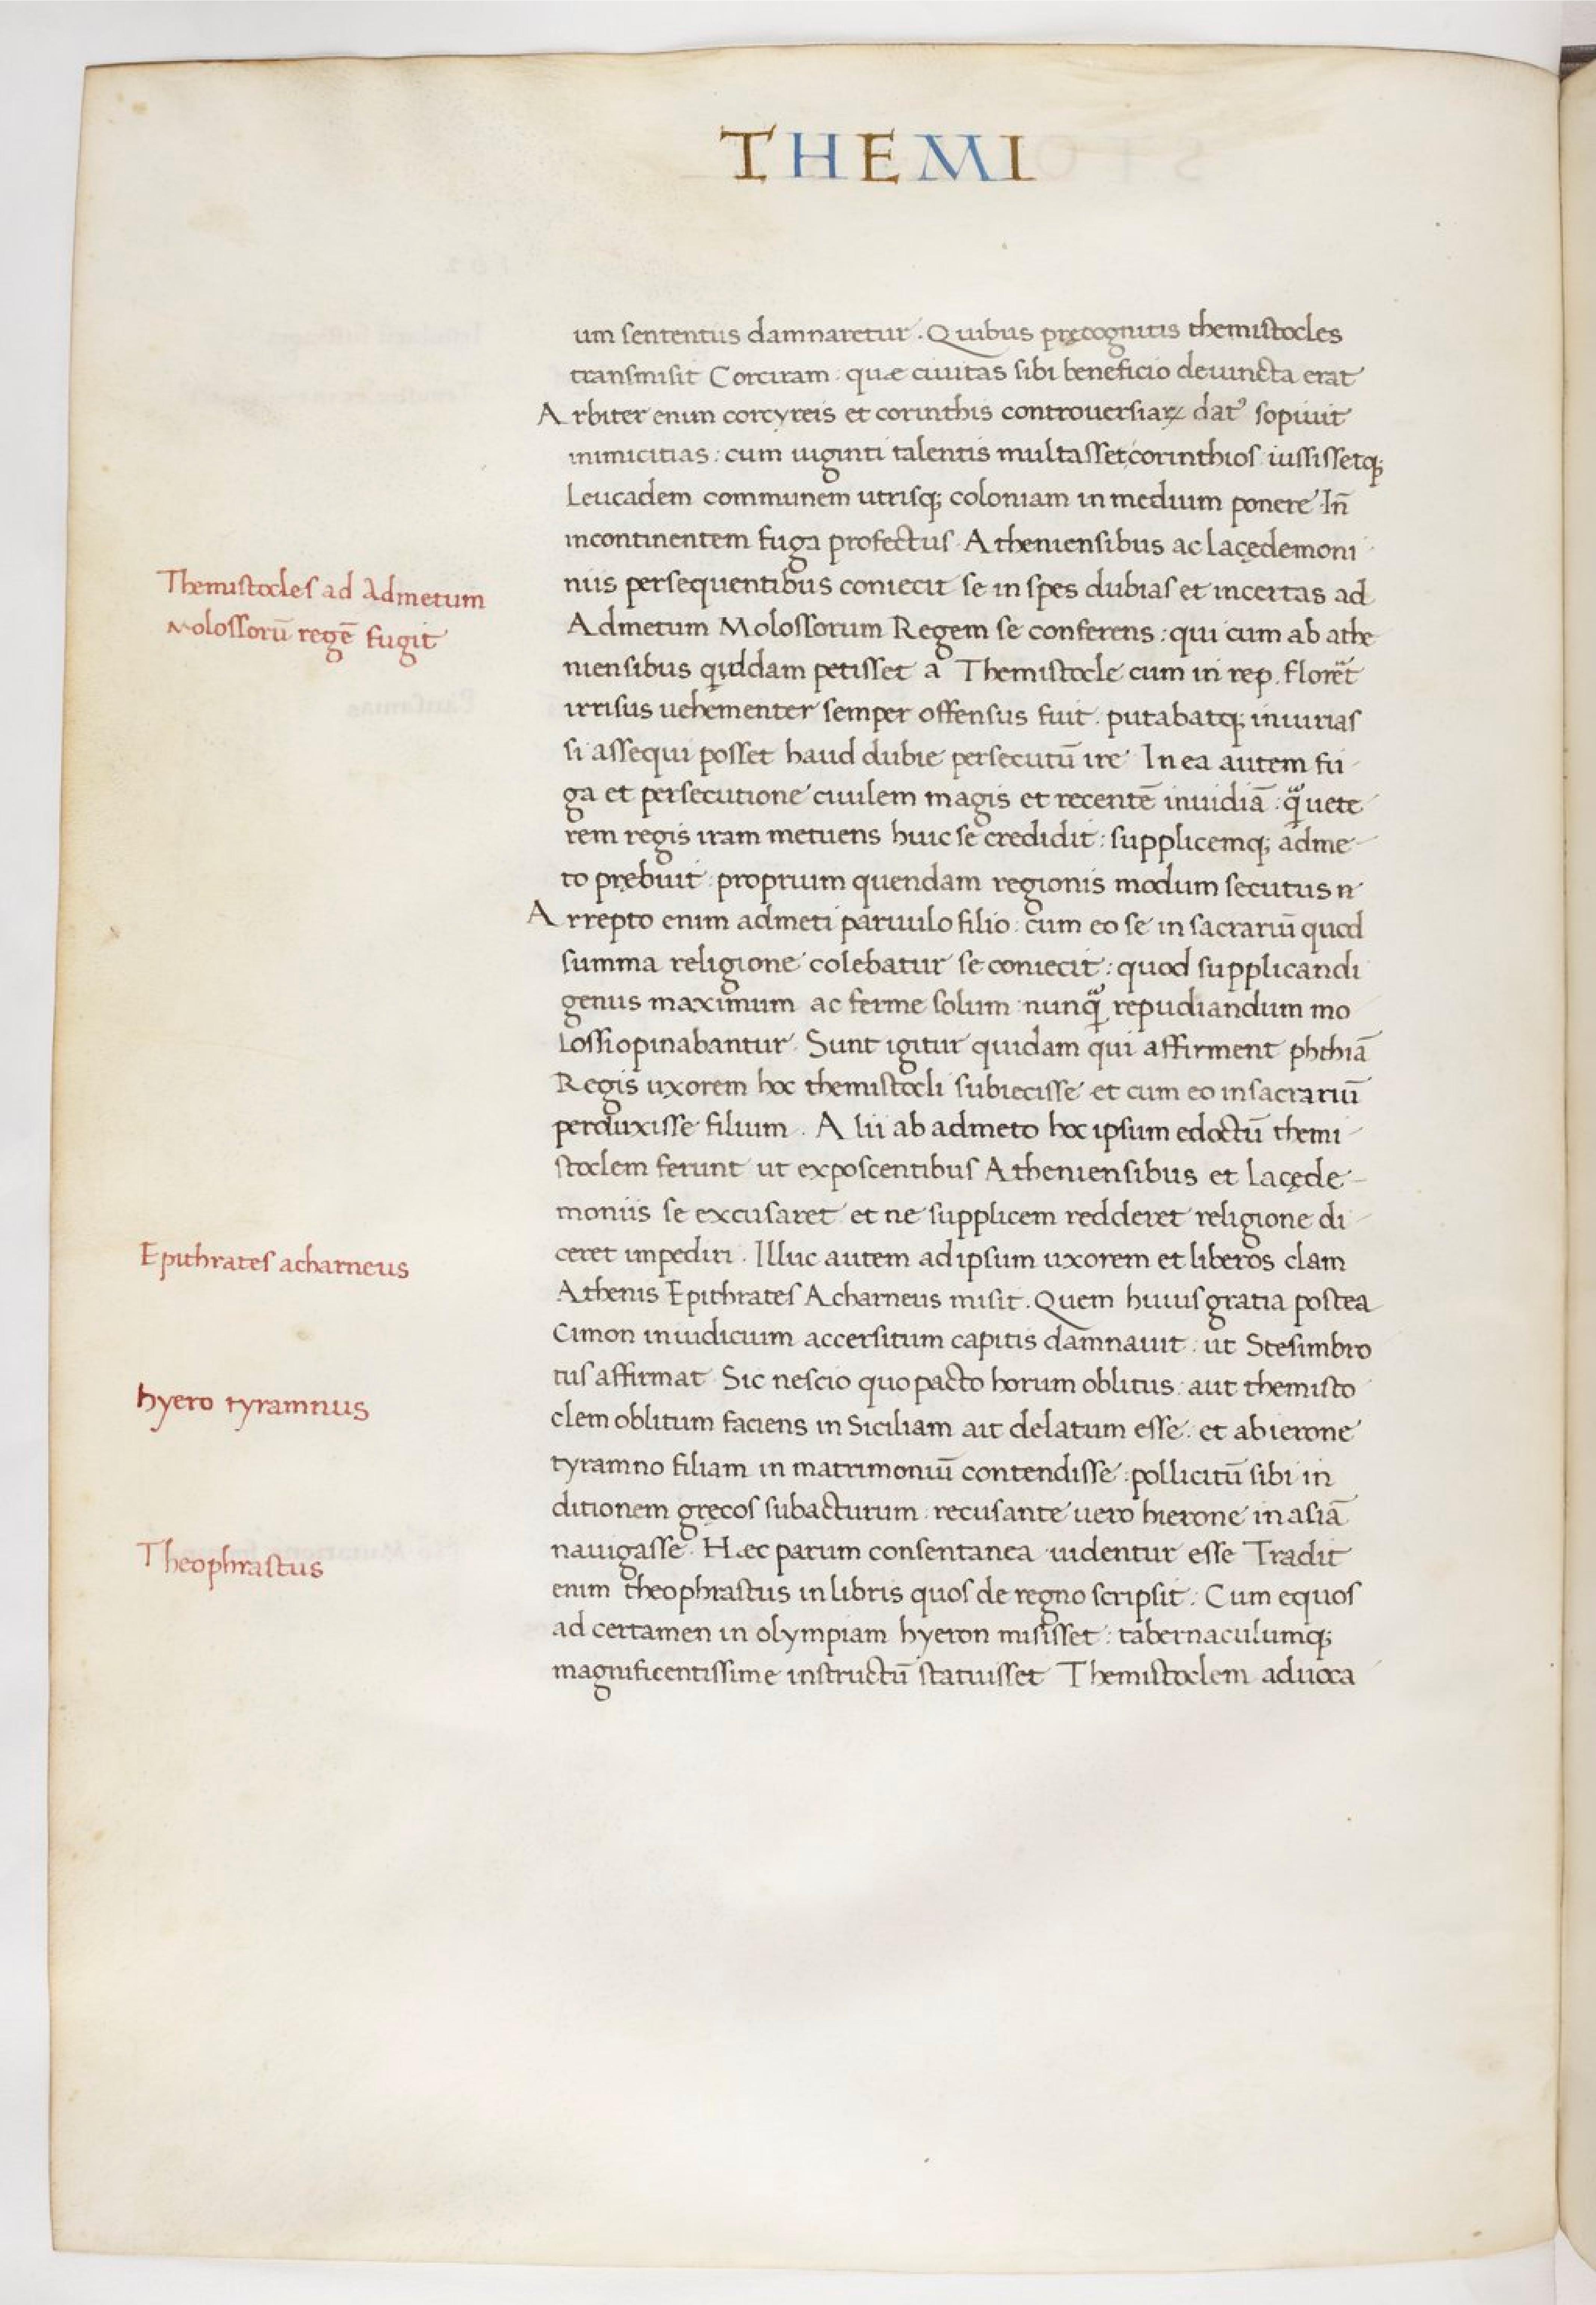 THEMI
um sententiis damnaretur. Quibus pręcognitis themistocles
transmisit Corciram. quæ ciuitas sibi beneficio deuincta erat
Arbiter enim corcyreis et corinthis controuersiaꝝ dat᾽ sopiuit
inimicitias: cum uiginti talentis multasset corinthios iussissetq;
Leucadem communem utrisq; coloniam in medium ponere. In̄
incontinentem fuga profectus. Atheniensibus ac lacędemoni
niis persequentibus coniecit se in spes dubias et incertas ad
Themistocles ad Admetum
Molossorū regē fugit
Admetum Molossorum Regem se conferens: qui cum ab athe
niensibus quddam petisset a Themistocle cum in rep. floret
irrisus uehementer semper offensus fuit. putabatq; iniurias
si assequi posset haud dubie persecutū ire. In ea autem fu
ga et persecutione ciuilem magis et recentē inuidiā: ꝗ̃ uete
rem regis iram metuens huic se credidit: supplicemq; adme
to prębuit: proprium quendam regionis modum secutus n
Arrepto enim admeti paruulo filio: cum eo se in sacrariū quod
summa religione colebatur se coniecit: quod supplicandi
genus maximum ac ferme solum nunꝗ̃ repudiandum mo
lossi opinabantur. Sunt igitur quidam qui affirment phthiā
Regis uxorem hoc themistocli subiecisse et cum eo in sacrariū
perduxisse filium. Alii ab admeto hoc ipsum edoctū themi
stoclem ferunt ut exposcentibus Atheniensibus et lacęde
moniis se excusaret et ne supplicem redderet religione di
Epithrates acharneus
ceret impediri. Illuc autem ad ipsum uxorem et liberos clam
Athenis Epithrates Acharneus misit. Quem huius gratia postea
Cimon in iudicium accersitum capitis damnauit: ut Stesimbro
tus affirmat. Sic nescio quo pacto horum oblitus: aut themisto
hyero tyramnus
clem oblitum faciens in Siciliam ait delatum esse: et ab ierone
tyramno filiam in matrimoniū contendisse: pollicitū sibi in
ditionem gręcos subacturum: recusante uero hierone in asiā
Theophrastus
nauigasse. Hæc parum consentanea uidentur esse Tradit
enim theophrastus in libris quos de regno scripsit: Cum equos
ad certamen in olympiam hyeron misisset: tabernaculumq;
magnificentissime instructū statuisset Themistoclem aduoca